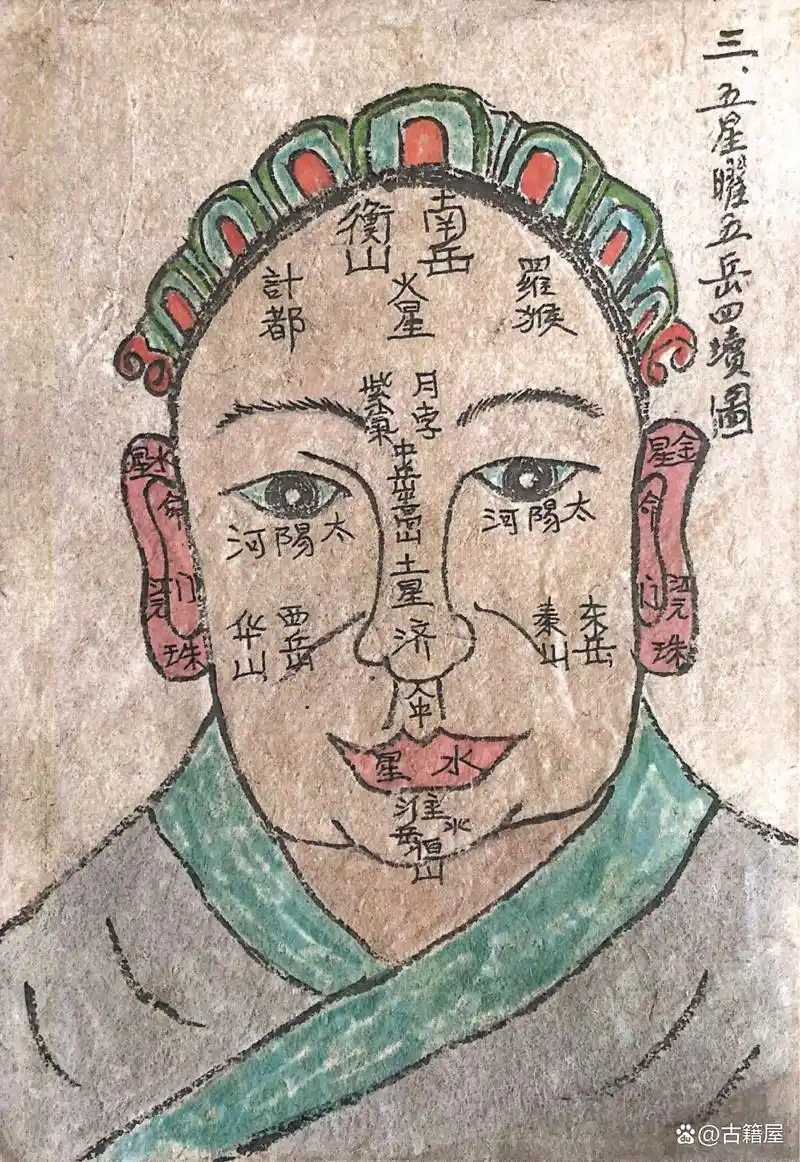 三、五星曜五岳四瀆圖
南岳
衡山
羅猴
火星
計都
月孛
紫氣
中岳嵩山
土星
济
人中
太陽河
太陽河
金星
命门
珠
水星
命门
珠
东岳
泰山
西岳
华山
水星
淮
岳恒山
@古籍屋